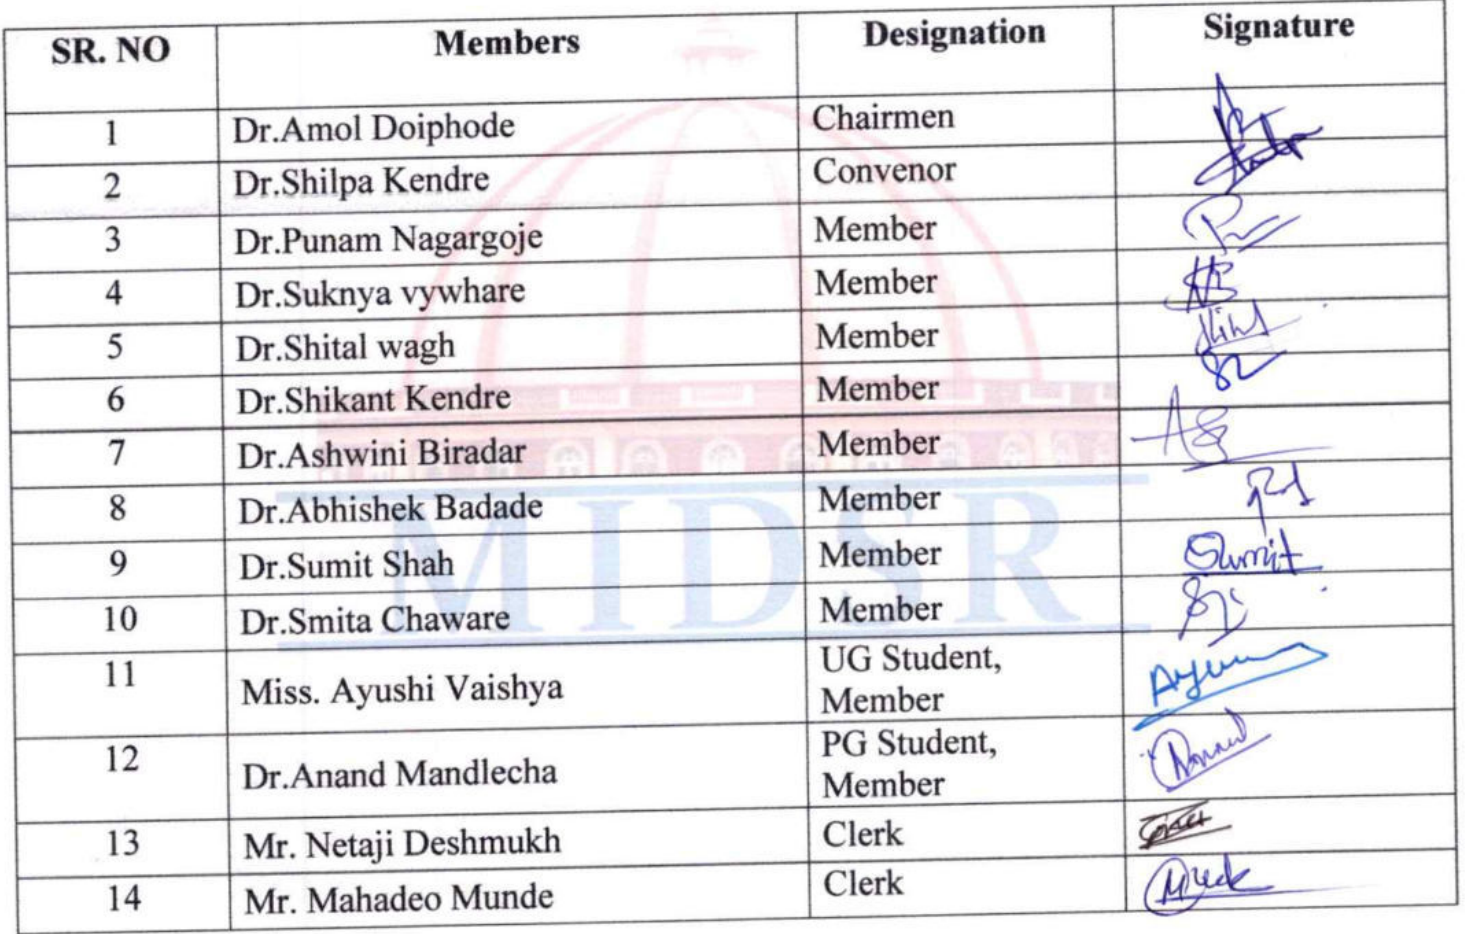 SR. NO Members Designation Signature
1 Dr.Amol Doiphode Chairmen
2 Dr.Shilpa Kendre Convenor
3 Dr.Punam Nagargoje Member
4 Dr.Suknya vywhare Member
5 Dr.Shital wagh Member
6 Dr.Shikant Kendre Member
7 Dr.Ashwini Biradar Member
8 Dr.Abhishek Badade Member
9 Dr.Sumit Shah Member Sumit
10 Dr.Smita Chaware Member
11 Miss. Ayushi Vaishya UG Student,
Member
12 Dr.Anand Mandlecha PG Student,
Member
13 Mr. Netaji Deshmukh Clerk
14 Mr. Mahadeo Munde Clerk
MIDSR